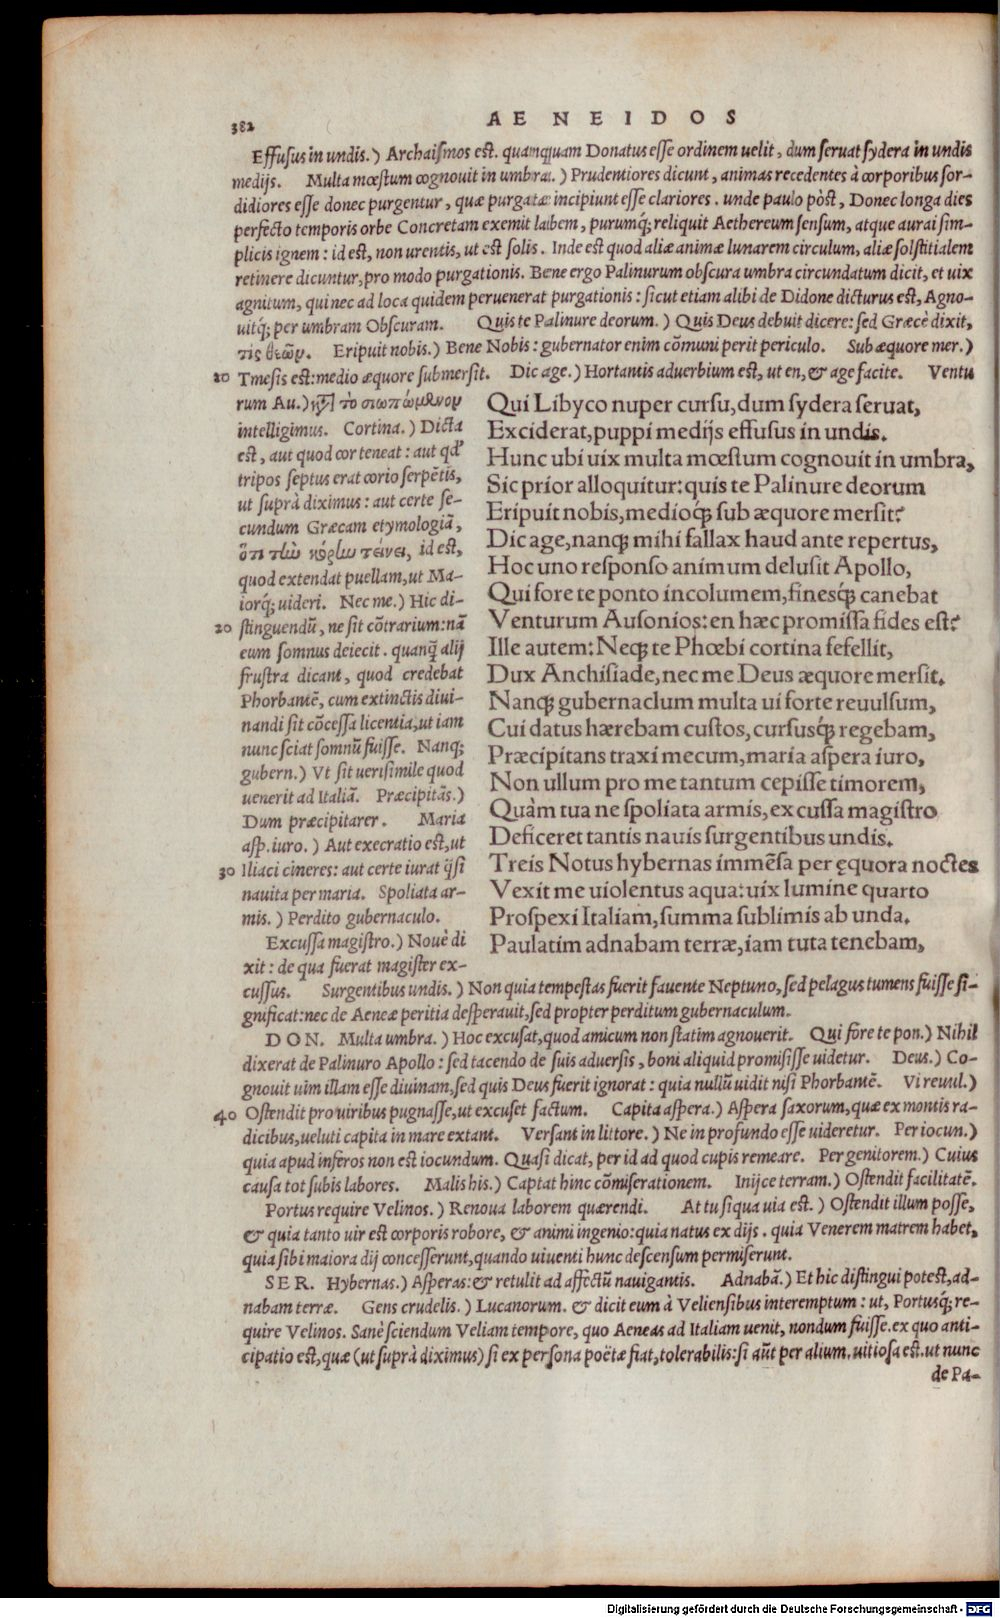 382
AENEIDOS
Effusus in undis.) Archaismos est. quamquam Donatus esse ordinem uelit, dum seruat sydera in undis
medijs. Multa mœstum cognouit in umbra.) Prudentiores dicunt, animas recedentes à corporibus sor-
didiores esse donec purgentur, quæ purgatæ incipiunt esse clariores. unde paulo pòst, Donec longa dies
perfecto temporis orbe Concretam exemit labem, purumq́; reliquit Aethereum sensum, atque aurai sim-
plicis ignem: id est, non urentis, ut est solis. Inde est quod aliæ animæ lunarem circulum, aliæ solstitialem
retinere dicuntur, pro modo purgationis. Bene ergo Palinurum obscura umbra circundatum dicit, et uix
agnitum, qui nec ad loca quidem peruenerat purgationis: sicut etiam alibi de Didone dicturus est, Agno-
uitq́; per umbram Obscuram. Quis te Palinure deorum.) Quis Deus debuit dicere: sed Græcè dixit,
τίς θεῶν. Eripuit nobis.) Bene Nobis: gubernator enim cōmuni perit periculo. Sub æquore mer.)
10 Tmesis est: medio æquore submersit. Dic age.) Hortantis aduerbium est, ut en, & age facite. Ventu
rum Au.) τὸ σιωπώμενον
intelligimus. Cortina.) Dicta
est, aut quod cor teneat: aut qd'
tripos septus erat corio serpētis,
ut suprà diximus: aut certe se-
cundum Græcam etymologiā,
ὅτι τὴν κόρην τείνει, id est,
quod extendat puellam, ut Ma-
iorq́; uideri. Nec me.) Hic di-
20 stinguendū, ne sit cōtrarium: nā
eum somnus deiecit. quanq̃ alij
frustra dicant, quod credebat
Phorbantē, cum extinctis diui-
nandi sit cōcessa licentia, ut iam
nunc sciat somnū fuisse. Nanq;
gubern.) Vt sit uerisimile quod
uenerit ad Italiā. Præcipitās.)
Dum præcipitarer. Maria
asp. iuro.) Aut execratio est, ut
30 Iliaci cineres: aut certe iurat q̃si
nauita per maria. Spoliata ar-
mis.) Perdito gubernaculo.
Excussa magistro.) Nouè di
xit: de qua fuerat magister ex-
Qui Libyco nuper cursu, dum sydera seruat,
Exciderat, puppi medijs effusus in undis.
Hunc ubi uix multa mœstum cognouit in umbra,
Sic prior alloquitur: quis te Palinure deorum
Eripuit nobis, medioq́; sub æquore mersit?
Dic age, nanq; mihi fallax haud ante repertus,
Hoc uno responso animum delusit Apollo,
Qui fore te ponto incolumem, finesq́; canebat
Venturum Ausonios: en hæc promissa fides est?
Ille autem: Neq; te Phœbi cortina fefellit,
Dux Anchisiade, nec me Deus æquore mersit.
Nanq; gubernaclum multa ui forte reuulsum,
Cui datus hærebam custos, cursusq́; regebam,
Præcipitans traxi mecum, maria aspera iuro,
Non ullum pro me tantum cepisse timorem,
Quàm tua ne spoliata armis, excussa magistro
Deficeret tantis nauis surgentibus undis.
Treis Notus hybernas immēsa per ęquora noctes
Vexit me uiolentus aqua: uix lumine quarto
Prospexi Italiam, summa sublimis ab unda.
Paulatim adnabam terræ, iam tuta tenebam,
cussus. Surgentibus undis.) Non quia tempestas fuerit fauente Neptuno, sed pelagus tumens fuisse si-
gnificat: nec de Aeneæ peritia desperauit, sed propter perditum gubernaculum.
DON. Multa umbra.) Hoc excusat, quod amicum non statim agnouerit. Qui fore te pon.) Nihil
dixerat de Palinuro Apollo: sed tacendo de suis aduersis, boni aliquid promisisse uidetur. Deus.) Co-
gnouit uim illam esse diuinam, sed quis Deus fuerit ignorat: quia nullū uidit nisi Phorbantē. Vi reuul.)
40 Ostendit pro uiribus pugnasse, ut excuset factum. Capita aspera.) Aspera saxorum, quæ ex montis ra-
dicibus, ueluti capita in mare extant. Versant in littore.) Ne in profundo esse uideretur. Per iocun.)
quia apud inferos non est iocundum. Quasi dicat, per id ad quod cupis remeare. Per genitorem.) Cuius
causa tot subis labores. Malis his.) Captat hinc cōmiserationem. Inijce terram.) Ostendit facilitatē.
Portus require Velinos.) Renoua laborem quærendi. At tu si qua uia est.) Ostendit illum posse,
& quia tanto uir est corporis robore, & animi ingenio: quia natus ex dijs. quia Venerem matrem habet,
quia sibi maiora dij concesserunt, quando uiuenti hunc descensum permiserunt.
SER. Hybernas.) Asperas: & retulit ad affectū nauigantis. Adnabā.) Et hic distingui potest, ad-
nabam terræ. Gens crudelis.) Lucanorum. & dicit eum à Veliensibus interemptum: ut, Portusq́; re-
quire Velinos. Sanè sciendum Veliam tempore, quo Aeneas ad Italiam uenit, nondum fuisse. ex quo anti-
cipatio est, quæ (ut suprà diximus) si ex persona poëtæ fiat, tolerabilis: si aūt per alium, uitiosa est. ut nunc
de Pa-
Digitalisierung gefördert durch die Deutsche Forschungsgemeinschaft - DFG